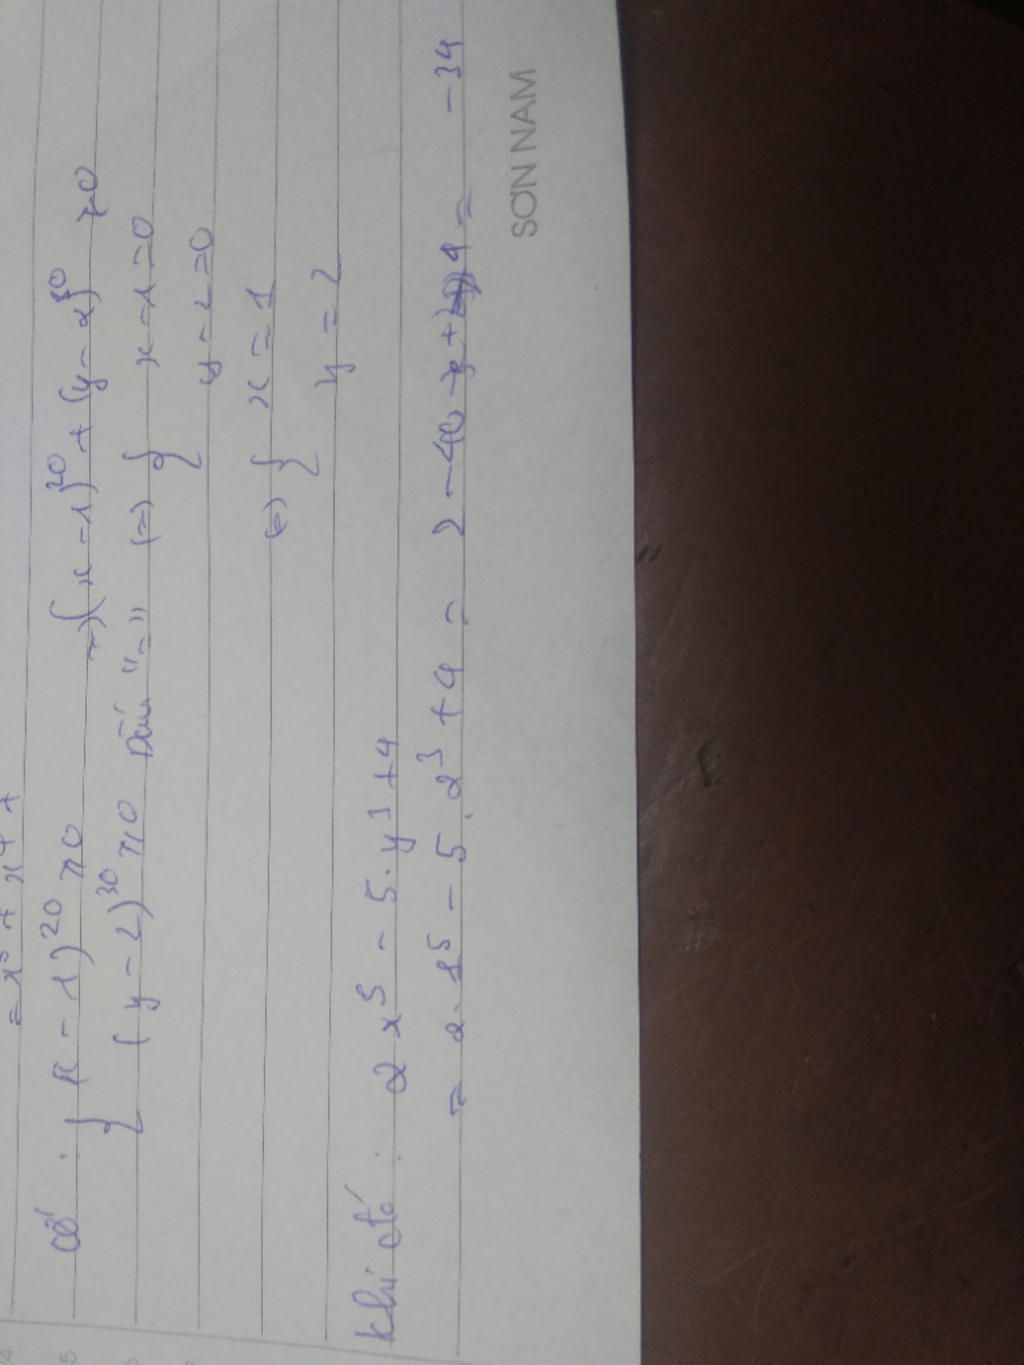 = x⁵ + x⁴ +
có : { (x - 1)²⁰ ≥ 0 => (x - 1)²⁰ + (y - 2)³⁰ ≥ 0
(y - 2)³⁰ ≥ 0 Dấu "=" (=) { x - 1 = 0
y - 2 = 0
(=) { x = 1
y = 2
Khi đó : 2x⁵ - 5.y³ + 4
= 2.1⁵ - 5.2³ + 4 = 2 - 40 + 4 = -34
SƠN NAM